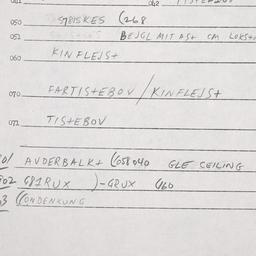 050 STØISKES (268
052 BEJGL MIT AST CM LOKST
060 KINFLEJST
070 FARTISTEBOV / KINFLEJST
072 TISTEBOV
01 AVDERBALKT (058 040 GLE CEILING
02 G81RUX )-GRUX (160
3 (ONDENKUNG